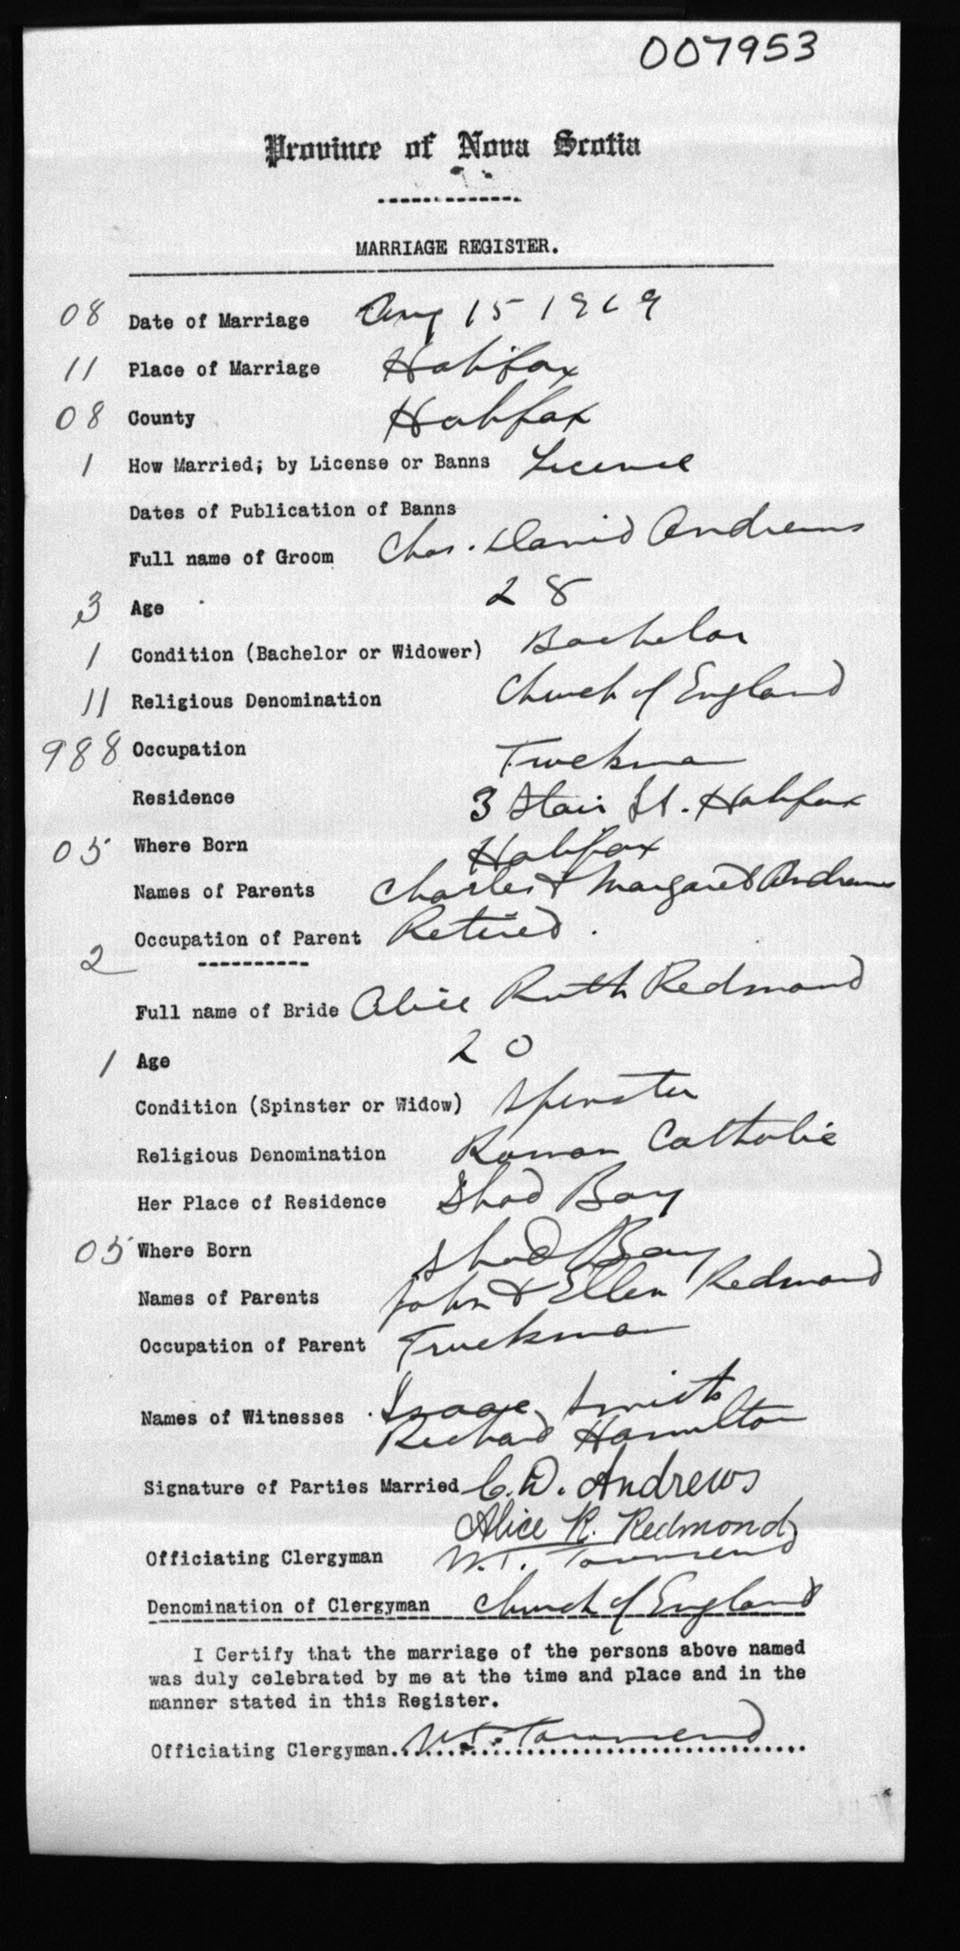 007953
Province of Nova Scotia
MARRIAGE REGISTER.
08 Date of Marriage Aug 15 1919
11 Place of Marriage Halifax
08 County Halifax
1 How Married; by License or Banns License
Dates of Publication of Banns
Full name of Groom Chas. David Andrews
3 Age 28
1 Condition (Bachelor or Widower) Bachelor
11 Religious Denomination Church of England
988 Occupation Truckman
Residence 3 Stair St. Halifax
05 Where Born Halifax
Names of Parents Charles & Margaret Andrews
Occupation of Parent Retired.
2
Full name of Bride Alice Ruth Redmond
1 Age 20
Condition (Spinster or Widow) Spinster
Religious Denomination Roman Catholic
Her Place of Residence Shad Bay
05 Where Born Shad Bay
Names of Parents John & Ellen Redmond
Occupation of Parent Truckman
Names of Witnesses Isaac Smith
Richard Hamilton
Signature of Parties Married C. D. Andrews
Alice R. Redmond
Officiating Clergyman W.T. Townsend
Denomination of Clergyman Church of England
I Certify that the marriage of the persons above named
was duly celebrated by me at the time and place and in the
manner stated in this Register.
Officiating Clergyman W.T. Townsend